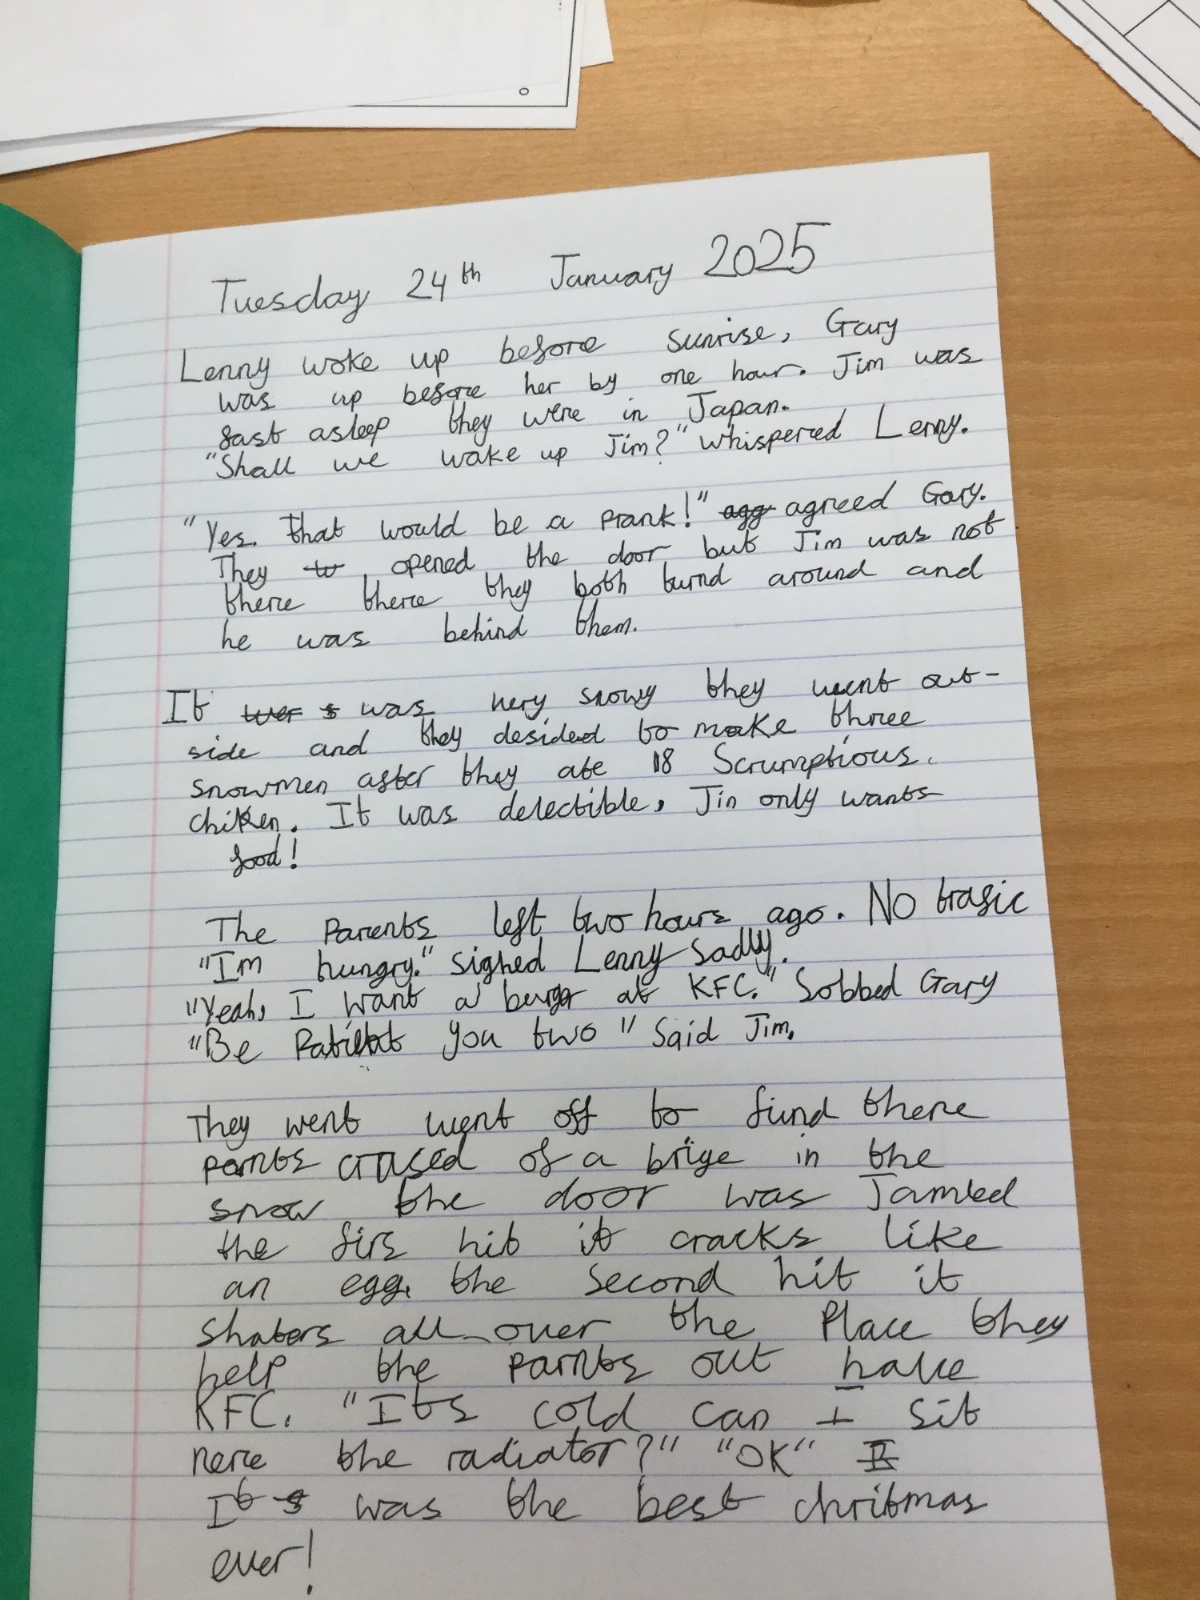 Tuesday 24th January 2025
Lenny woke up before sunrise, Gary
was up before her by one hour. Jim was
fast asleep they were in Japan.
"Shall we wake up Jim?" whispered Lenny.
"Yes. that would be a prank!" agg agreed Gary.
They to opened the door but Jim was not
there there they both turnd around and
he was behind them.
It wer s was very snowy they went out-
side and they desided to make three
snowmen after they ate 18 Scrumptious.
chiken. It was delectible, Jin only wants
food!
The Parents left two hours ago. No trafic
"Im hungry." sighed Lenny sadly.
"Yeah, I want a burgr at KFC." Sobbed Gary
"Be Patient you two" Said Jim.
They went went off to find there
parnts crased of a brige in the
snow the door was Jamed
the firs hit it cracks like
an egg. the second hit it
shaters all over the Place they
help the parnts out have
KFC. "Its cold can I sit
nere the radiator?" "OK" It
It s was the best chritmas
ever!